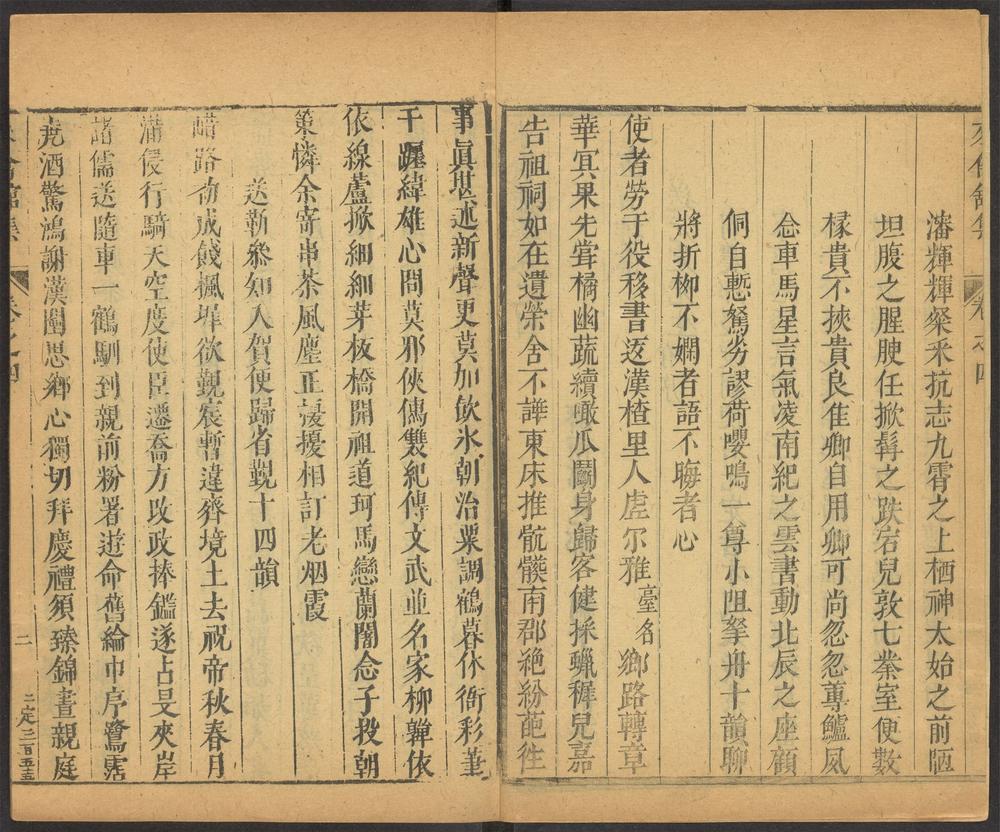 卷之四
瀋輝輝粲釆抗志九霄之上栖神太始之前陋
坦腹之腥腴任掀髯之跌宕兒敦七桊室便數
椽貴不挾貴良隹卿自用卿可尚忽忽蓴鱸夙
念車馬星言氣凌南紀之雲書動北辰之座顧
侗自慙駑劣謬荷嚶鳴一尊小阻孥舟十韻聊
將折桺不嫻者語不晦者心
使者勞于役移書返漢楂里人虗尔雅臺名鄉路轉章
華冥果先甞橘幽蔬續噉瓜鬬身歸客健採蠟穉兒嘉
告祖祠如在遺榮舍不譁東床推骯髒南郡絶紛葩徃
事眞堪述新聲更莫加飲氷朝治粟調鶴暮休衙彩筆
千躔緯雄心問莫邪俠儁雙紀傳文武並名家柳軃依
依線蘆掀細細芽板橋開祖道珂馬戀蘭闍念子投朝
策憐余寄串茶風塵正𢥠擾相訂老烟霞
送靳叅知入賀便歸省覲十四韻
皓路初成餞楓墀欲覲宸暫違齊境土去祝帝秋春月
滿侵行騎天空度使臣遷喬方改政捧鑑遂占旻夾岸
諸儒送隨車一鶴馴到親前粉署逰命舊綸巾序鷺霑
堯酒驚鴻謝漢闉思鄉心獨切拜慶禮須臻錦晝親庭
卷之四
二
二定三百五十五